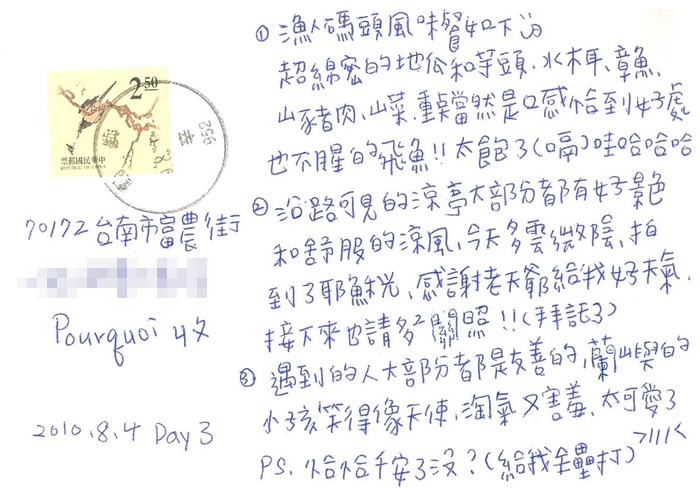 2 50
票郵國民華中
REPUBLIC OF CHINA
952
70172 台南市富農街
Pourquoi 收
2010.8.4 Day 3
① 漁人碼頭風味餐如下:)
超綿密的地瓜和芋頭、水木耳、章魚、
山豬肉、山菜、重點當然是口感恰到好處
也不腥的飛魚!! 太飽了(嗝)哇哈哈哈
② 沿路可見的涼亭大部分都有好景色
和舒服的涼風,今天多雲微陰,拍
到了耶穌光,感謝老天爺給我好天氣,
接下來也請多²關照!!(拜託了)
③ 遇到的人大部份都是友善的,蘭嶼的
小孩笑得像天使,淘氣又害羞,太可愛了
PS. 恰恰千安了沒?(給我全壘打) >///<